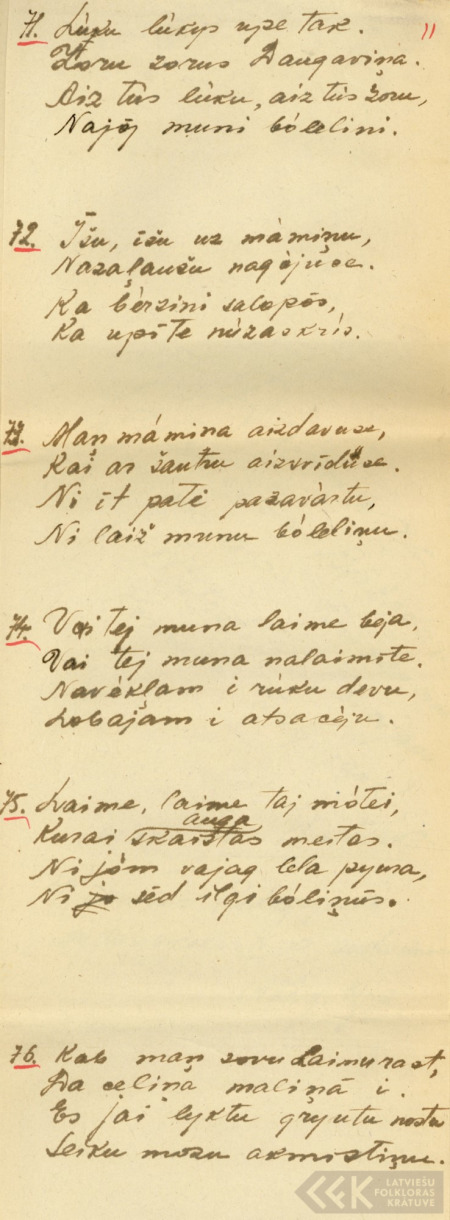 71. Lúku lúkys upe tak. 11
Zoru zorus Daugaviņa.
Aiz tús lúku, aiz tús žoru,
Najōj muni bólelini.
72. Īšu, īšu uz mámiņu,
Nazaļaušu nagójuse.
Ka bèrzini salopōs,
Ka upīte núzaskrís.
73. Man mámina aizdavuse,
Kai ar šautru aizvīdùse.
Ni īt patei pazavàrtu,
Ni laiž munu bóleliņu.
74. Vai tej muna laime beja,
Vai tej muna nalaimīte.
Navéklam i rúku devu,
Lobajam i atsacèju.
75. Laime, laime taj mótei,
Kurai auga skaistas meitas.
Ni jóm vajag lela pyura,
Ni jo sēd ilgi bóliņūs.
76. Kab man sovu Laimu rast,
Da celiņa maliņā i.
Es jai lyktu gryutu nostu
Seiku mozu akmistiņu.
LATVIEŠU
FOLKLORAS
KRATUVE